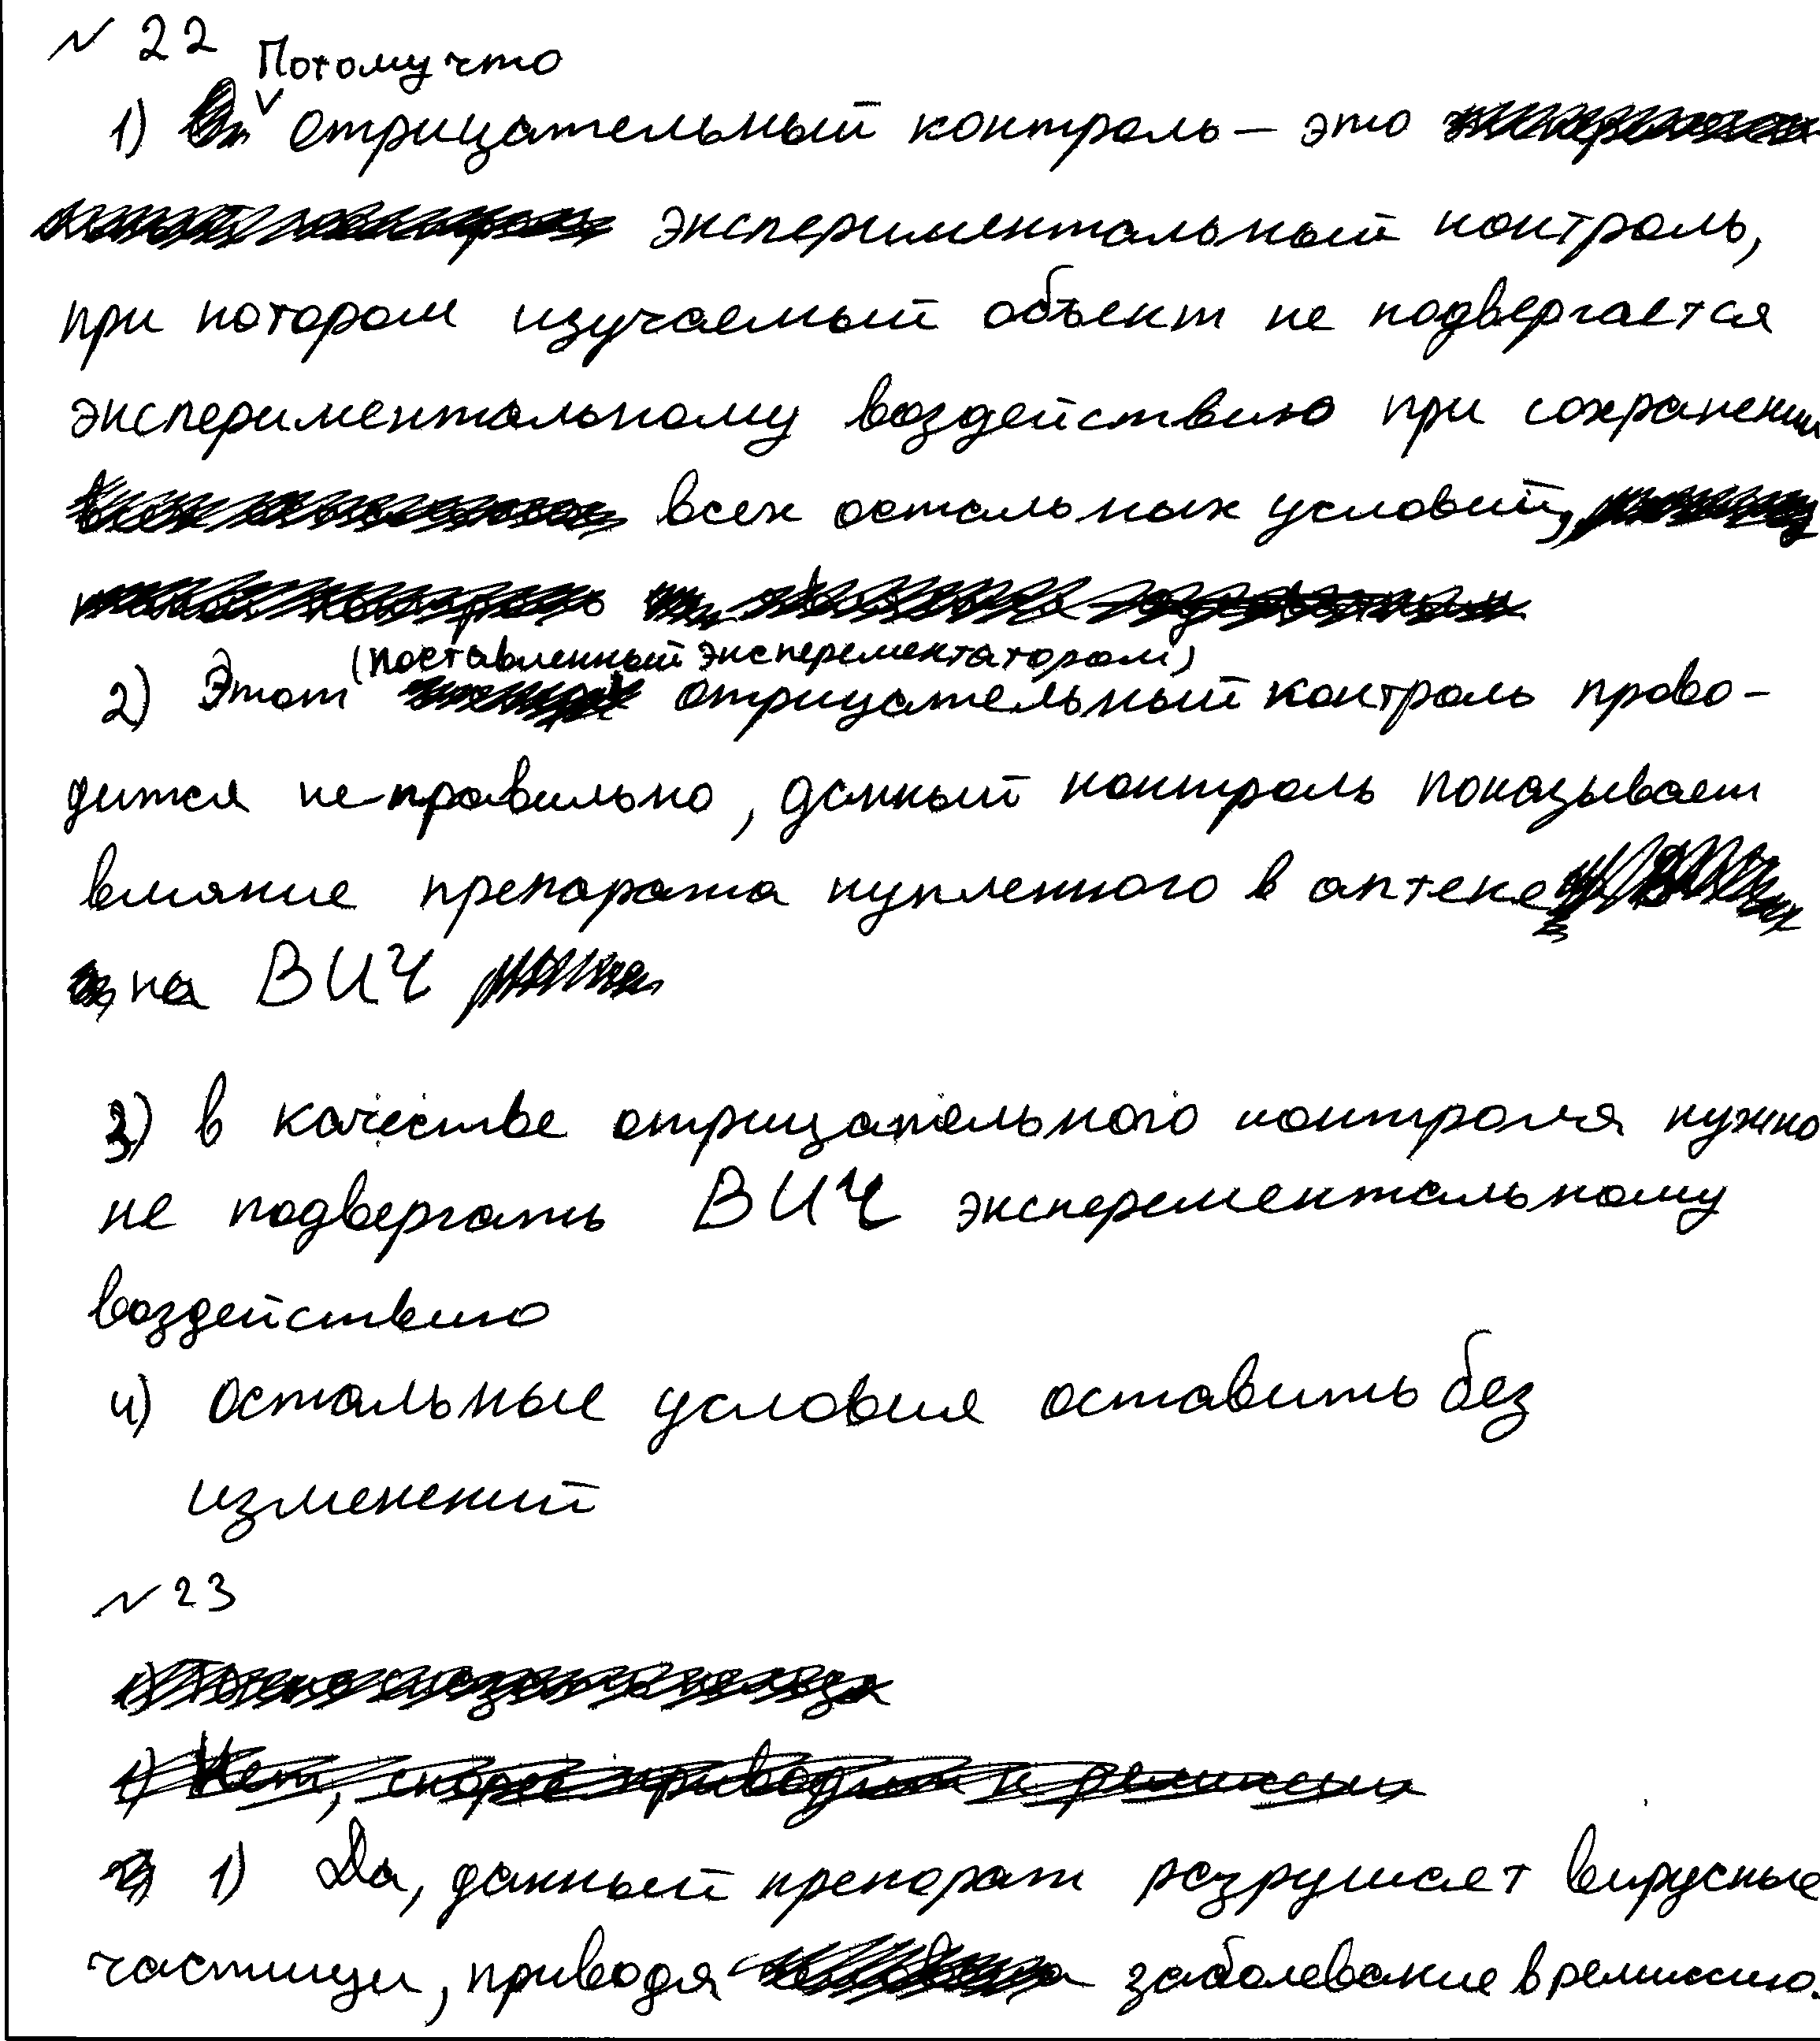 № 22
Потому что
1) Отрицательный контроль – это
экспериментальный контроль,
при котором изучаемый объект не подвергается
экспериментальному воздействию при сохранении
всех остальных условий,
(поставленный эксперементатором)
2) Этот отрицательный контроль прово-
дится неправильно, данный контроль показывает
влияние препарата купленного в аптеке
на ВИЧ
3) в качестве отрицательного контроля нужно
не подвергать ВИЧ эксперементальному
воздействию
4) остальные условия оставить без
изменений
№ 23
1) Нет, скорее приводит к ремиссии
1) Да, данный препарат разрушает вирусные
частицы, приводя заболевание в ремиссию.